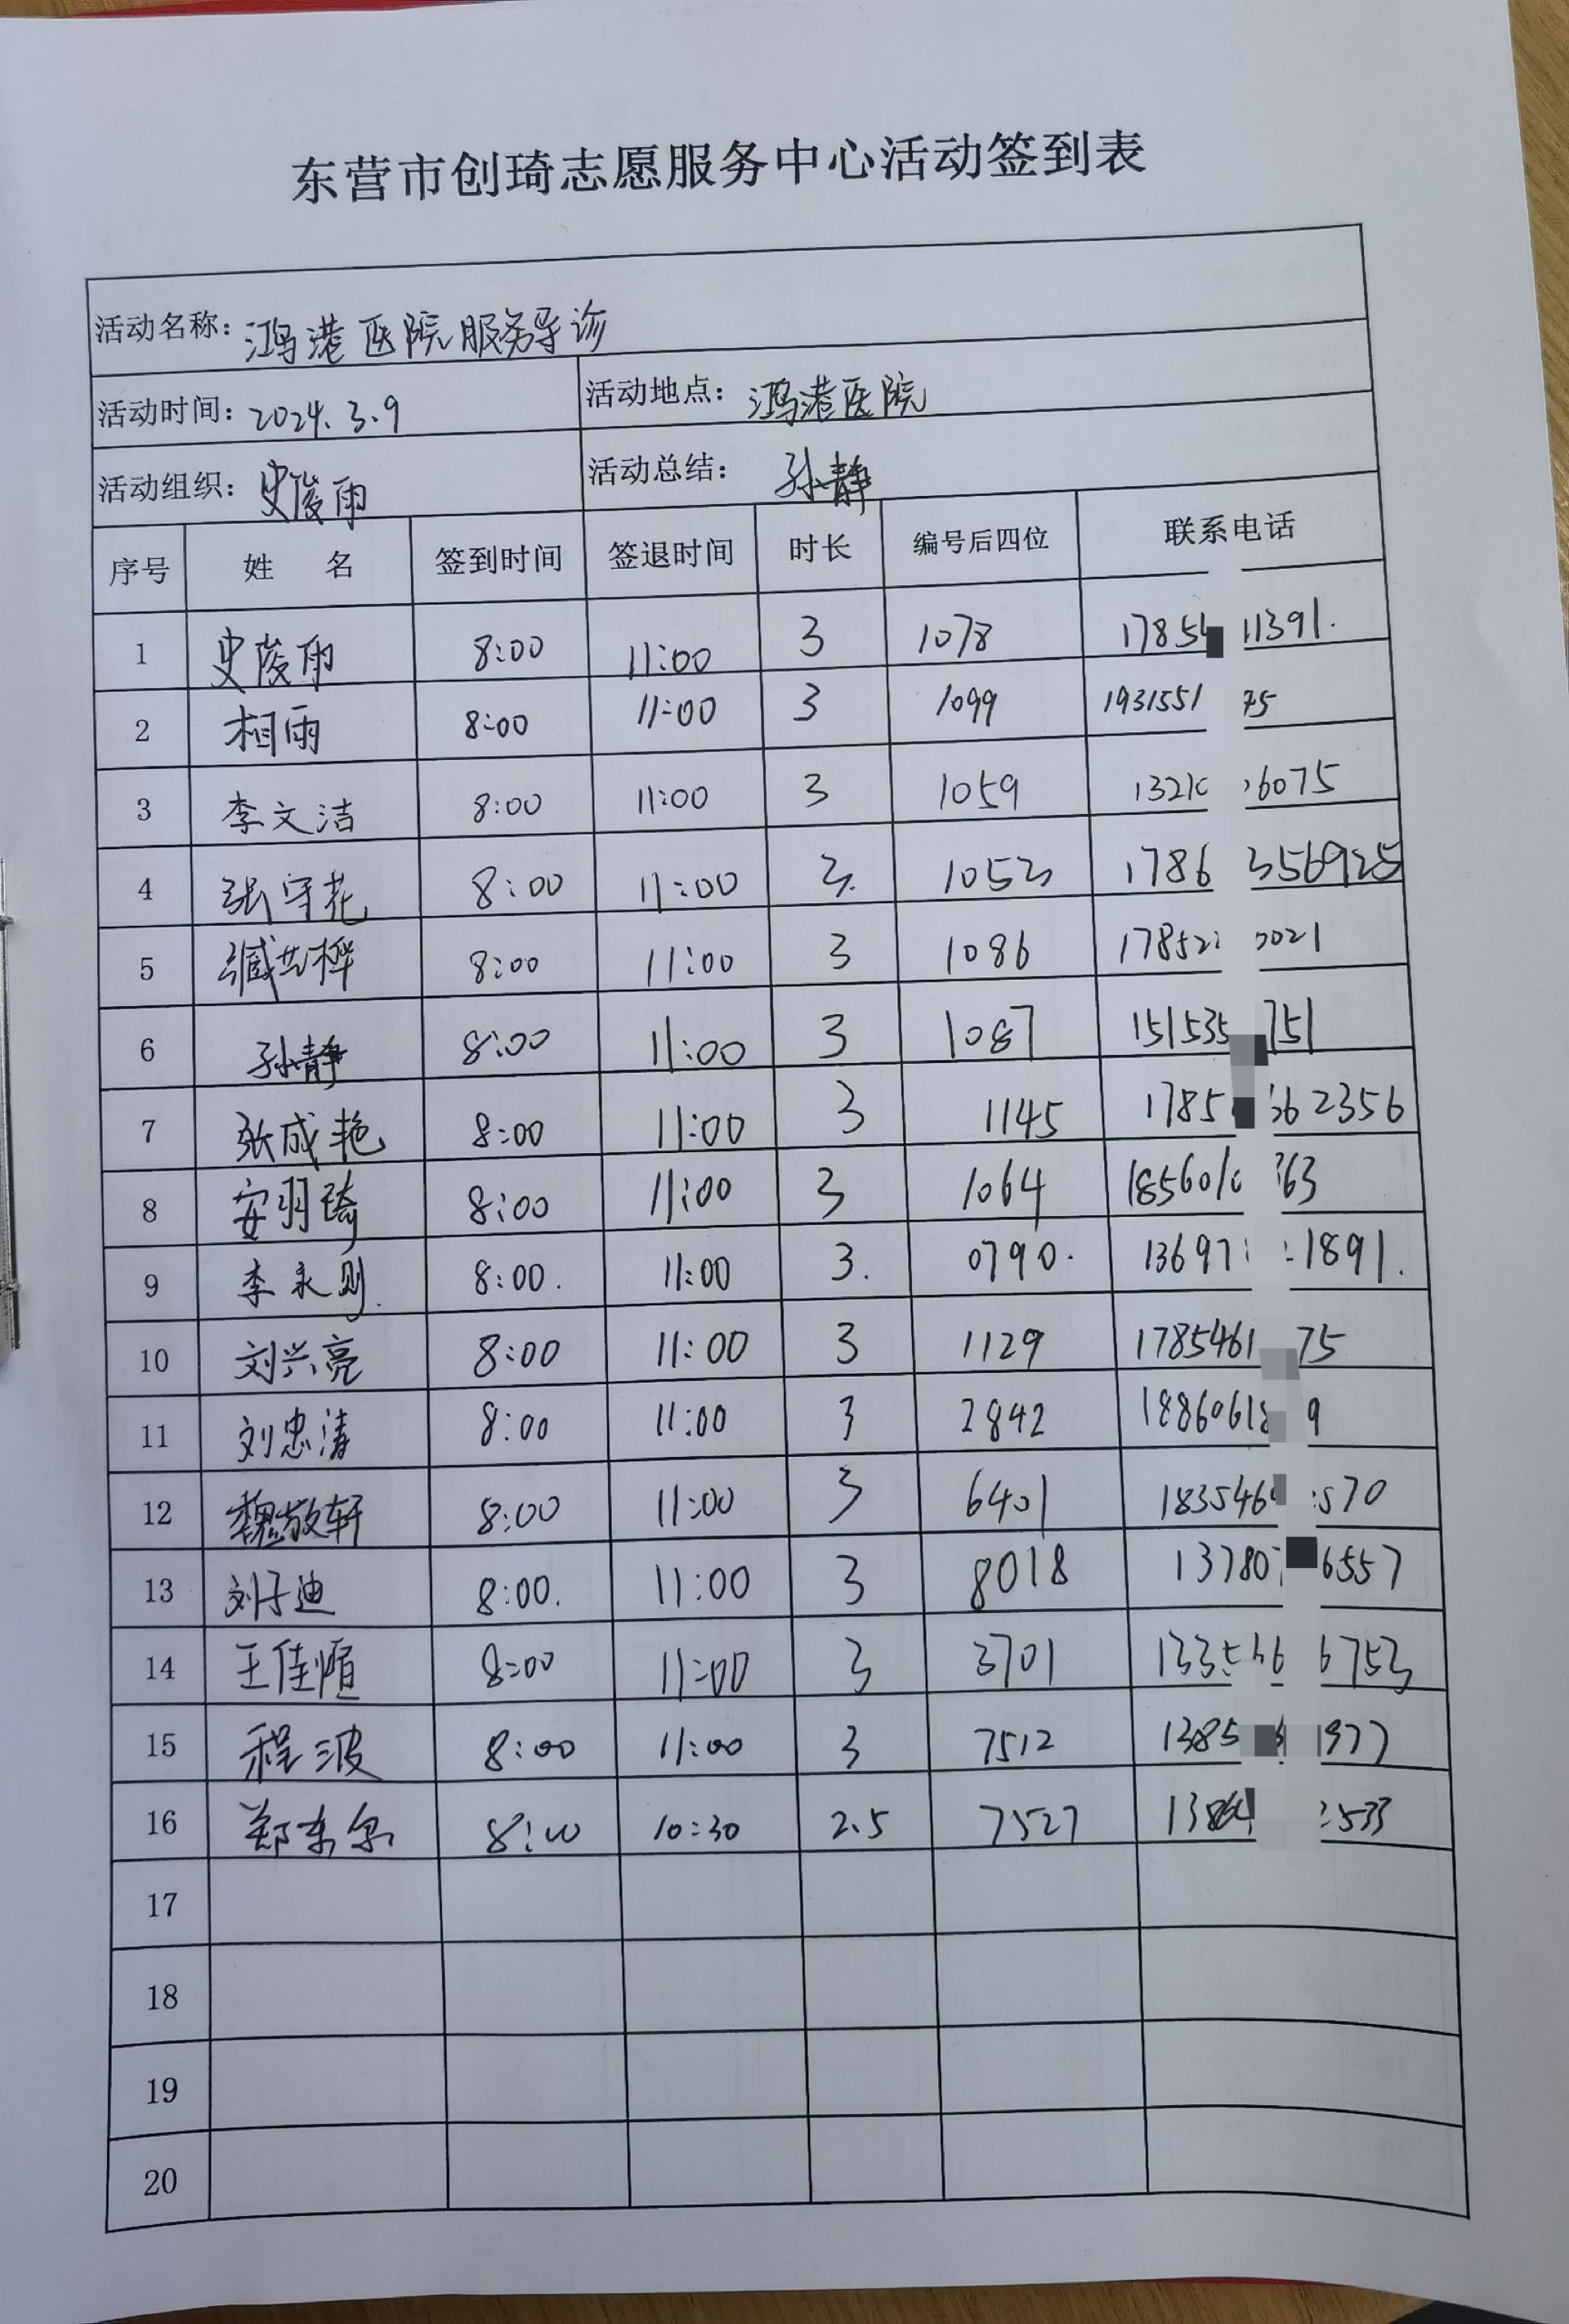 东营市创琦志愿服务中心活动签到表
活动名称：鸿港医院服务导诊
活动时间：2024.3.9 活动地点：鸿港医院
活动组织：史俊雨 活动总结：孙静
序号 姓 名 签到时间 签退时间 时长 编号后四位 联系电话
1 史俊雨 8:00 11:00 3 1078 1785 11391.
2 相雨 8:00 11:00 3 1099 1931551 75
3 李文洁 8:00 11:00 3 1059 1321 6075
4 张守花 8:00 11:00 3. 1053 1786 356925
5 8:00 11:00 3 1086 17852 0021
6 孙静 8:00 11:00 3 1087 151535 751
7 张成艳 8:00 11:00 3 1145 1785 62356
8 安羽琦 8:00 11:00 3 1064 185601 63
9 李永则. 8:00. 11:00 3. 0790. 13697 1891.
10 刘兴亮 8:00 11:00 3 1129 1785461 75
11 刘忠涛 8:00 11:00 3 2842 1886061 9
12 魏敬轩 8:00 11:00 3 6401 183546 570
13 刘子迪 8:00. 11:00 3 8018 13780 6557
14 王佳 8:00 11:00 3 3701 133 6 6753
15 程波 8:00 11:00 3 7512 1385 977
16 郑东 8:00 10:30 2.5 7527 1386 533
17
18
19
20